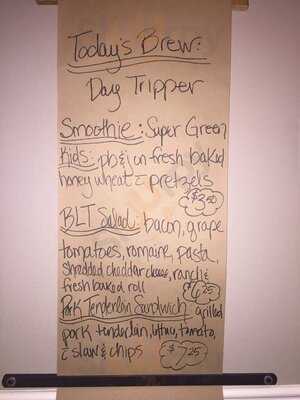 Today's Brew:
Day Tripper
Smoothie: Super Green
Kids: pb & j on fresh baked
honey wheat c pretzels
$3.50
BLT Salad: bacon, grape
tomatoes, romaine, pasta,
shredded cheddar cheese, ranch &
fresh baked roll $6.25
Pork Tenderloin Sandwich grilled
pork tenderloin, lettuce, tomato,
c slaw & chips $7.25